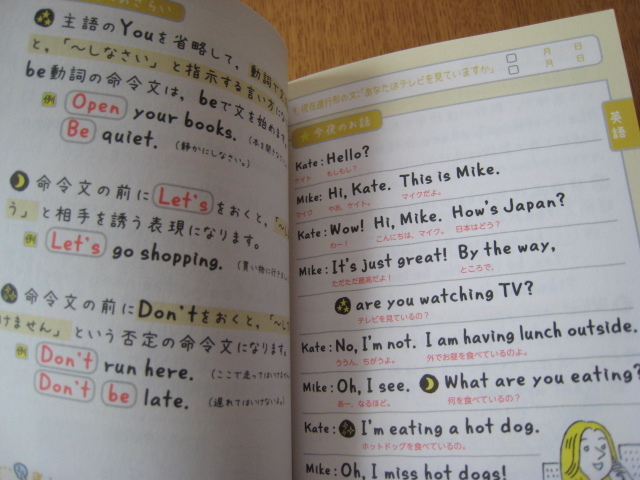 さらい
主語のYouを省略して、動詞で文
と、「〜しなさい」と指示する言い方にな
be動詞の命令文は、beで文を始めます。
例 Open your books.
Be quiet. (静かにしなさい。)
命令文の前にLet'sをおくと、「〜
う」と相手を誘う表現になります。
例 Let's go shopping. (買い物に行きま
命令文の前にDon'tをおくと、「〜し
けません」という否定の命令文になります。
例 Don't run here. (ここで走ってはいけませ
Don't be late. (遅れてはいけないよ。)
現在進行形の文「あなたはテレビを見ていますか」
月 日
月 日
英語
★今夜のお話
Kate: Hello?
ケイト もしもし?
Mike: Hi, Kate. This is Mike.
マイク やあ、ケイト。 マイクだよ。
Kate: Wow! Hi, Mike. How's Japan?
わー! こんにちは、マイク。 日本はどう?
Mike: It's just great! By the way,
ただただ最高だよ! ところで、
are you watching TV?
テレビを見ているの?
Kate: No, I'm not. I am having lunch outside.
ううん、ちがうよ。 外でお昼を食べているのよ。
Mike: Oh, I see. What are you eating?
あー、なるほど。 何を食べているの?
Kate: I'm eating a hot dog.
ホットドッグを食べているの。
Mike: Oh, I miss hot dogs!